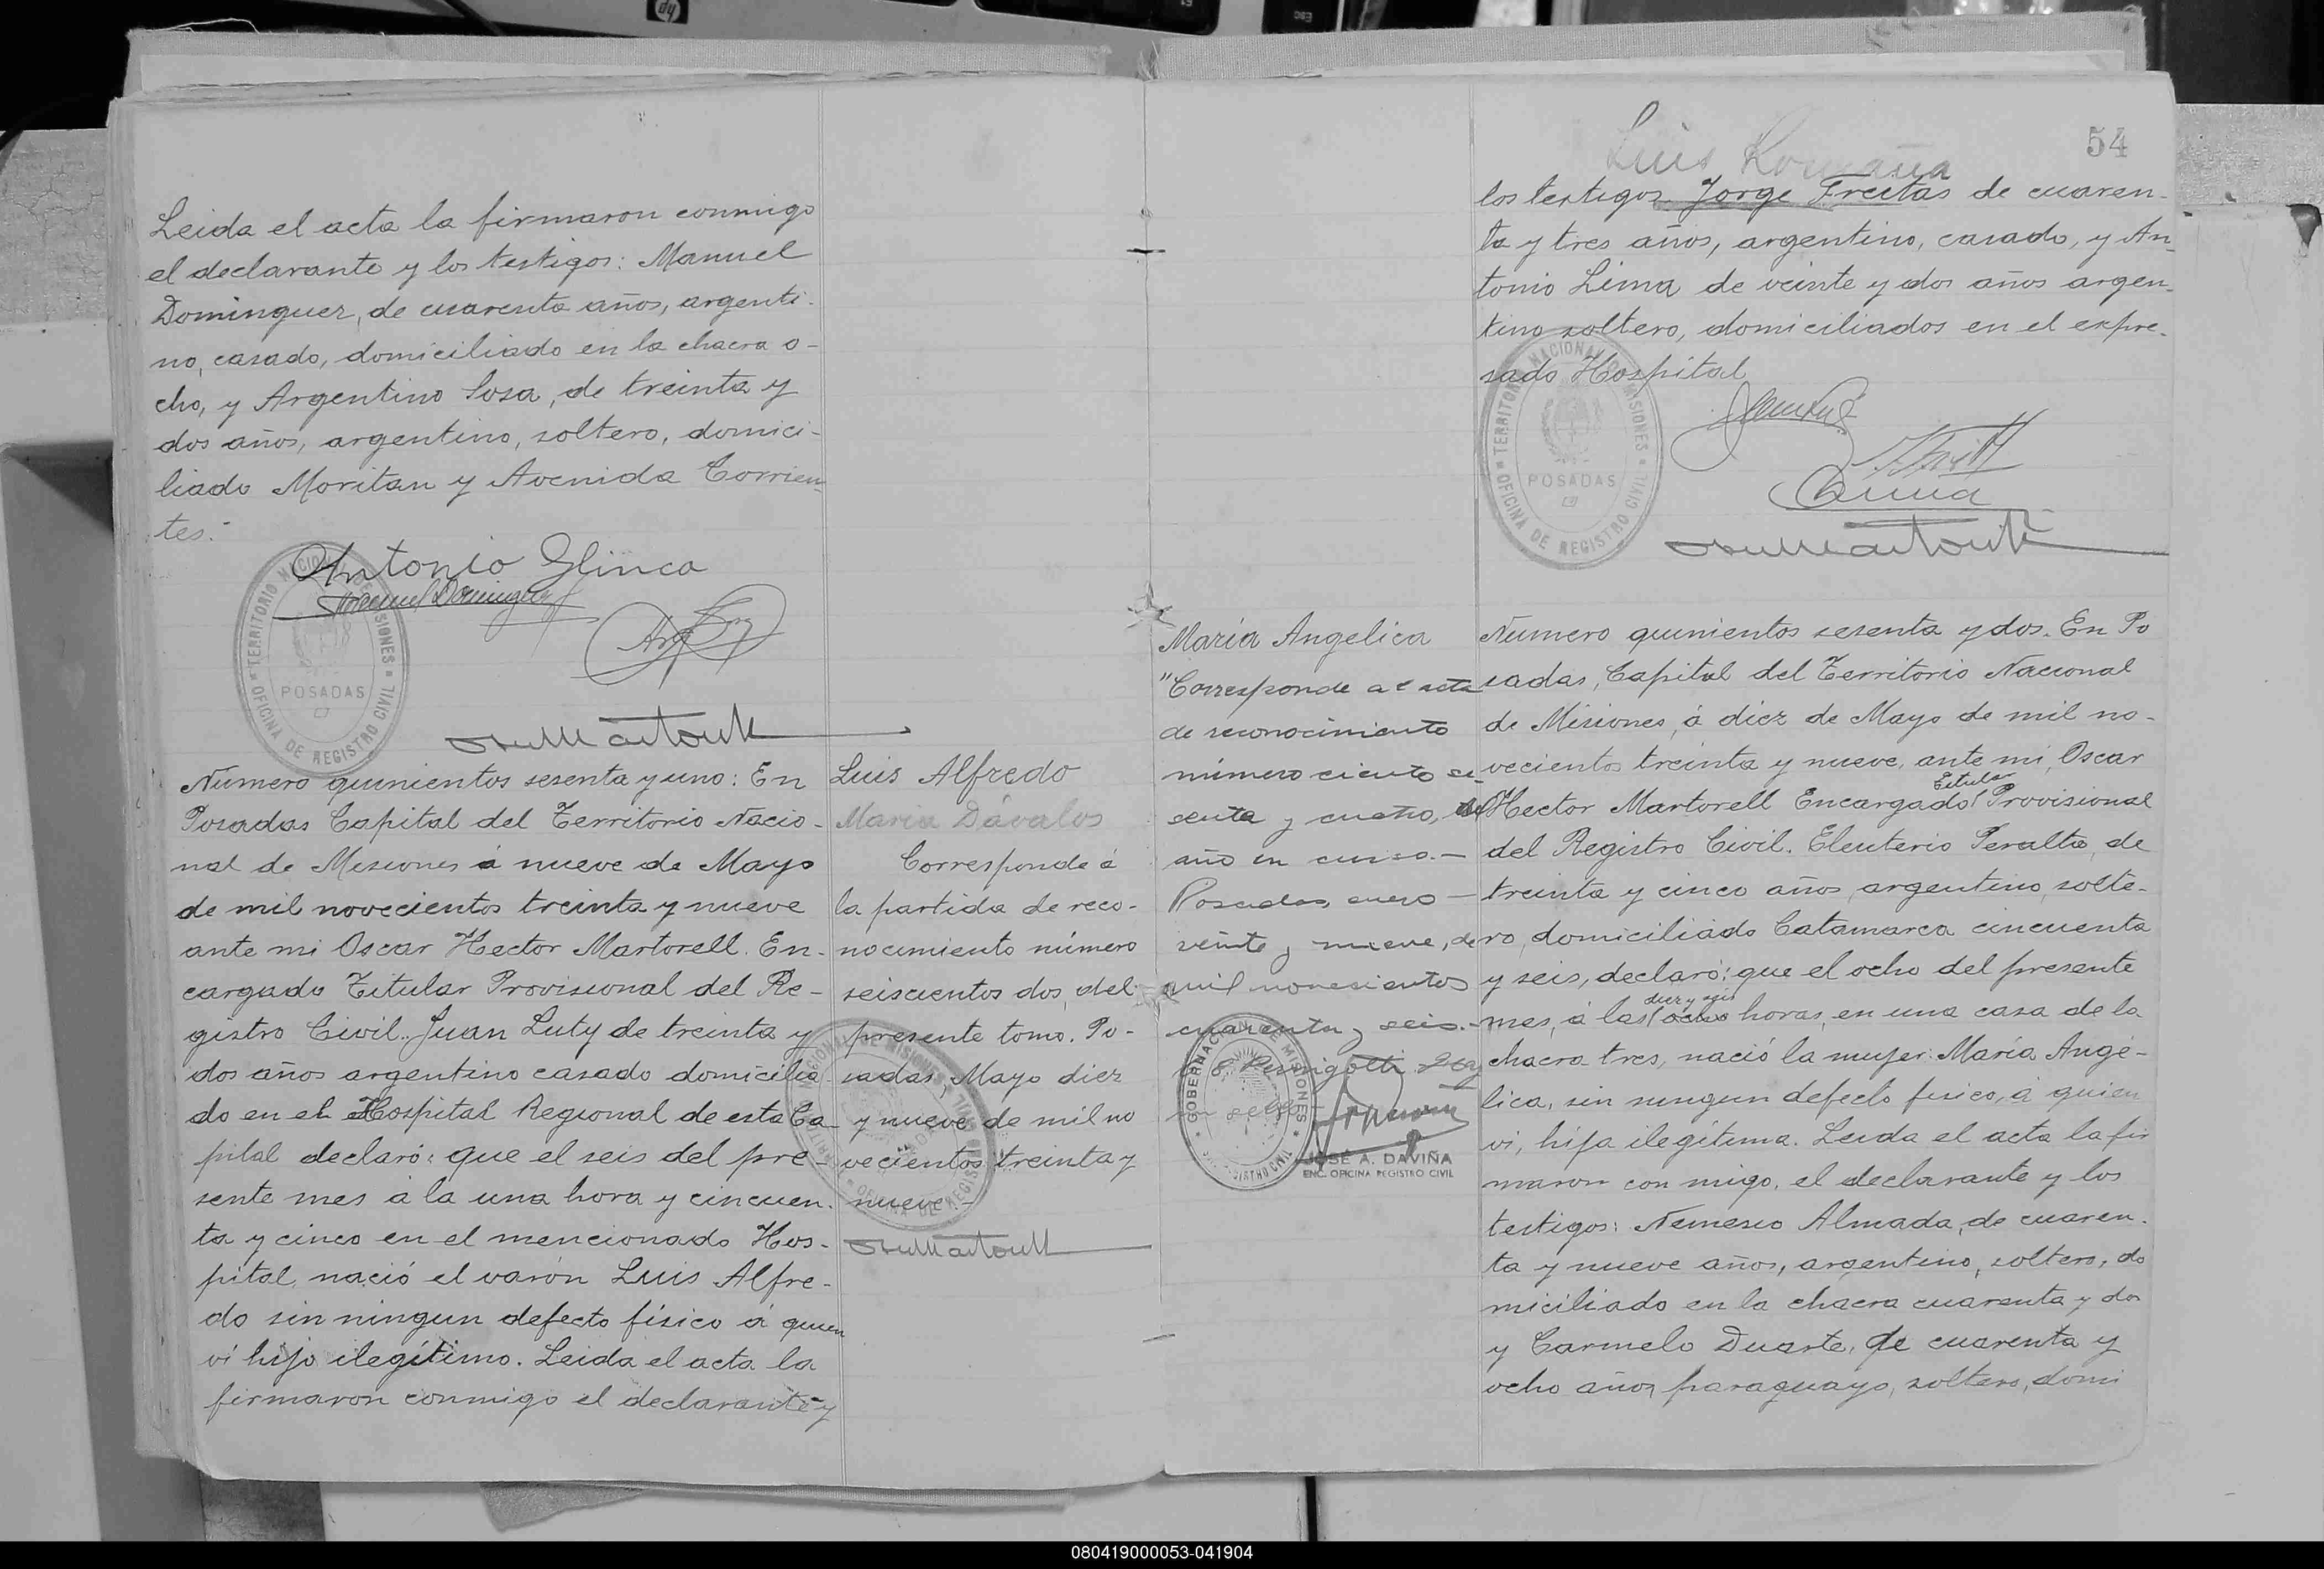 Leida el acta la firmaron conmigo
el declarante y los testigos: Manuel
Dominguez, de cuarenta años, argenti-
no, casado, domiciliado en la chacra o-
cho, y Argentino Sosa, de treinta y
dos años, argentino, soltero, domici-
liado Moritan y Avenida Corrien-
tes.-
Antonio Glinca
Manuel Dominguez
TERRITORIO NACIONAL DE MISIONES
POSADAS
OFICINA DE REGISTRO CIVIL
Número quinientos sesenta y uno: En
Posadas Capital del Territorio Nacio-
nal de Misiones á nueve de Mayo
de mil novecientos treinta y nueve
ante mi Oscar Hector Martorell. En-
cargado Titular Provisional del Re-
gistro Civil. Juan Luty de treinta y
dos años argentino casado domicilia-
do en el Hospital Regional de esta Ca-
pital declaró: que el seis del pre-
sente mes á la una hora y cincuen-
ta y cinco en el mencionado Hos-
pital, nació el varón Luis Alfre-
do sin ningun defecto físico á quien
ví hijo ilegítimo. Leida el acta la
firmaron conmigo el declarante y
Luis Alfredo
Maria Dávalos
Corresponde á
la partida de reco-
nocimiento número
seiscientos dos, del
presente tomo. Po-
sadas, Mayo diez
y nueve de mil no
vecientos treinta y
nueve.-
54
Luis Romaña
los testigos Jorge Freitas de cuaren-
ta y tres años, argentino, casado, y An-
tonio Lima de veinte y dos años argen-
tino soltero, domiciliados en el expre-
sado Hospital
TERRITORIO NACIONAL DE MISIONES
POSADAS
OFICINA DE REGISTRO CIVIL
María Angelica
"Corresponde al acta
de reconocimiento
número ciento se-
senta y cuatro, del
año en curso.-
Posadas, enero
veinte y nueve, de
mil novecientos
cuarenta y seis.-
GOBERNACION DE MISIONES
REGISTRO CIVIL
JOSÉ A. DAVIÑA
ENC. OFICINA REGISTRO CIVIL
Numero quinientos sesenta y dos. En Po
sadas, Capital del Territorio Nacional
de Misiones, á diez de Mayo de mil no-
vecientos treinta y nueve, ante mi, Oscar
Titular
Hector Martorell Encargado Provisional
del Registro Civil. Eleuterio Peralta, de
treinta y cinco años, argentino, solte-
ro, domiciliado Catamarca cincuenta
y seis, declaró: que el ocho del presente
diez y seis
mes, á las ocho horas, en una casa de la
chacra tres, nació la mujer: María Angé-
lica, sin ningun defecto fisico, á quien
vi, hija ilegítima. Leida el acta la fir
maron con migo, el declarante y los
testigos: Nemesio Almada, de cuaren-
ta y nueve años, argentino, soltero, do
miciliado en la chacra cuarenta y dos
y Carmelo Duarte, de cuarenta y
ocho años, paraguayo, soltero, domi
080419000053-041904